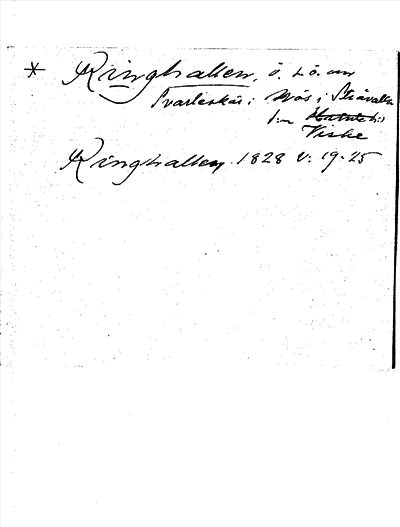 * Ringhallen, ö. L ö. om
Svarteskär i Näs i Stråvalla
sn
Viske
Ringhallen 1828 v. 19-25